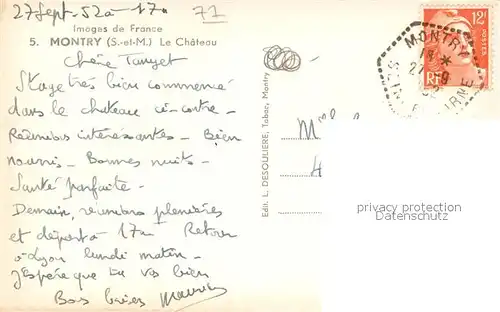 27 Sept. 52 à 17h 71
Images de France
5. MONTRY (S.-et-M.) Le Château
Chère
Stage très bien commencé
dans le chateau ci-contre -
Réunions intéressantes - Bien
nourris - Bonnes nuits -
Santé parfaite -
Demain, réunions plénières
et départ à 17h Retour
à Lyon lundi matin -
J'espère que tu vas bien
Bons baisers Maurice
Edit. L. DESOULIERE, Tabac, Montry
12F
POSTES
RF
MONTRY
SEINE ET MARNE
privacy protection
Datenschutz